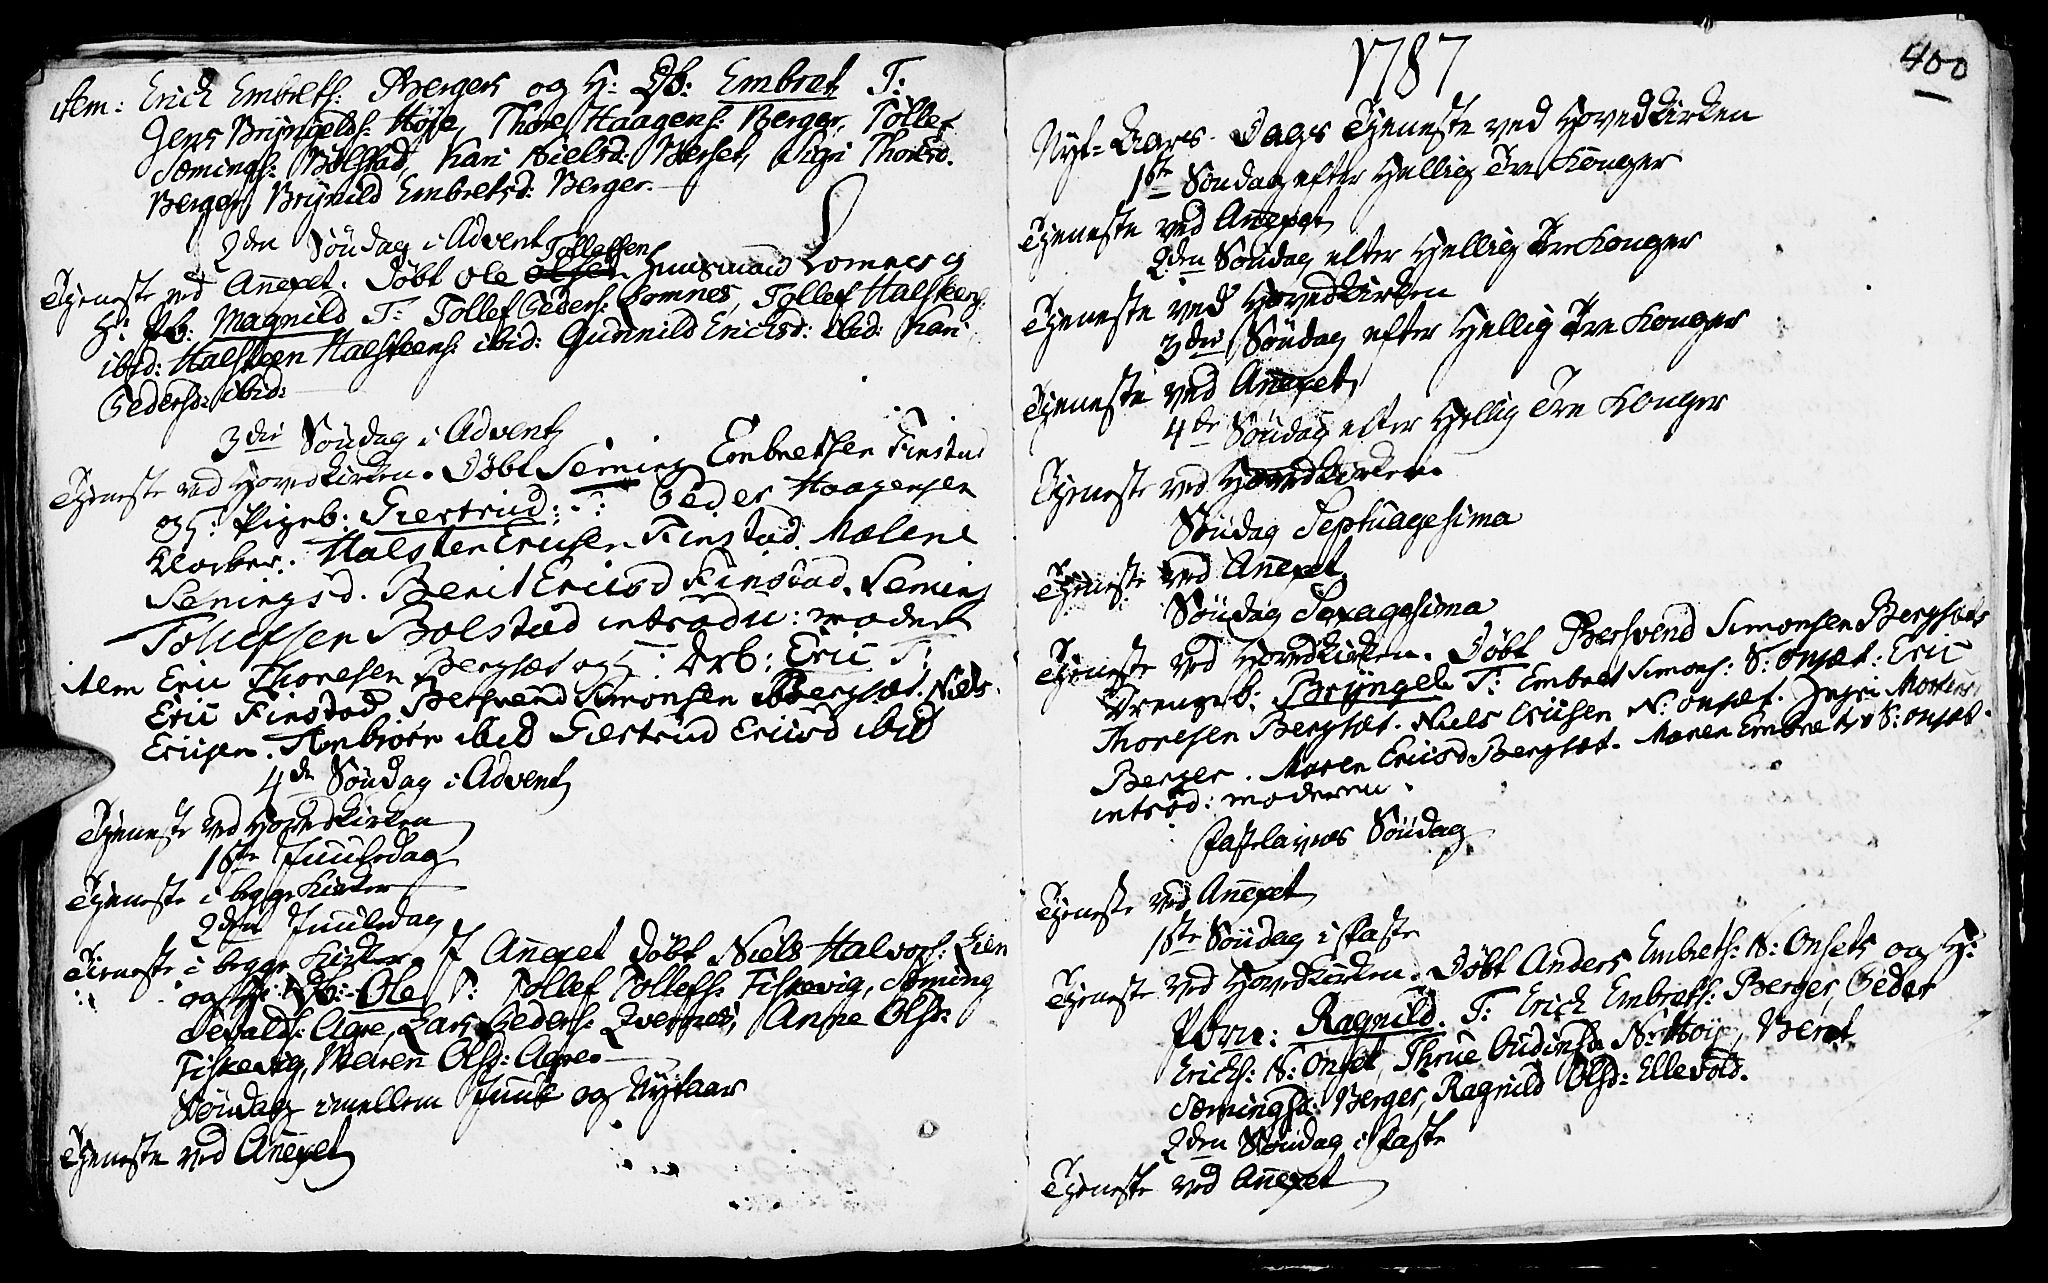 item: Erich Embrets: Berger og H: Db: Embret T:
Jens Bryngelds: Høje, Thore Haagens: Berger, Tollef
Sæmings: Bolstad, Kari Nielsd: Berset, Sigri Thoresd.
Berger, Brynild Embretsd: Berger.
2den Søndag i Advent
Tjeneste ved Anexet. Døbt Ole Tollefsen Huusmand Lomnes og
H: Pb: Magnild T: Tollef Peders: Lomnes, Tollef Halsteens:
ibid: Halsteen Halsteens: ibid: Gunnild Erichsd: ibid: Kari
Pedersd: ibid:
3die Søndag i Advent
Tjeneste ved Hovedkirken. Døbt Seming Embretsen Finstad
og H: Pigeb: Giertrud: T: Peder Haagensen
Klocker: Halsten Ericsen Finstad. Malene
Semingsd. Berit Ericsd Finstad. Seming
Tollefsen Bolstad introdu: moderen
item Eric Thoresen Bergset og H: Drb: Eric T:
Eric Finstad Bersvend Simonsen Bergset. Niels
Ericsen. Stenbiørn ibid Giertrud Ericsd ibid
4de Søndag i Advent
Tjeneste ved Hovedkirken
1ste Juuledag
Tjeneste i begge Kirker
2den Juuledag
Tjeneste i begge Kirker. I Anexet døbt Niels Halvors: Lien
og H: Db: Ole T: Tollef Tollefs: Fiskevig, Sæming
Sevalds: Agre, Lars Peders: Qvernes, Anne Olsd:
Fiskevig, Maren Olsd: Agre.
Søndag imellem Juul og Nytaar
Tjeneste ved Anexet
1787
400
Nyt-Aars-Dags Tjeneste ved Hovedkirken
1ste Søndag efter Hellig Tre Konger
Tjeneste ved Anexet
2den Søndag efter Hellig Tre Konger
Tjeneste ved Hovedkirken
3die Søndag efter Hellig Tre Konger
Tjeneste ved Anexet
4de Søndag efter Hellig Tre Konger
Tjeneste ved Hovedkirken.
Søndag Septuagesima
Tjeneste ved Anexet
Søndag Sexagesima
Tjeneste ved Hovedkirken. Døbt Bersvend Simonsen Bergsets
Drengeb: Bryngel. T: Embret Simons: S: onset: Eric
Thoresen Bergset. Niels Ericsen N: onset. Ingri Mortensd
Berger. Maren Ericsd Bergset. Maren Embretsd S: onset.
introd: moderen.
Fastelavns Søndag
Tjeneste ved Anexet
1ste Søndag i Faste
Tjeneste ved Hovedkirken. Døbt Anders Embrets: N: Onsets og H:
Ragnild. T: Erich Embrets: Berger, Peder
Erichs: N: Onset, Thrue Oudensd: N: Høje, Beret
Sæmingsd: Berger, Ragnild Olsd: Ellevold.
2den Søndag i Faste
Tjeneste ved Anexet